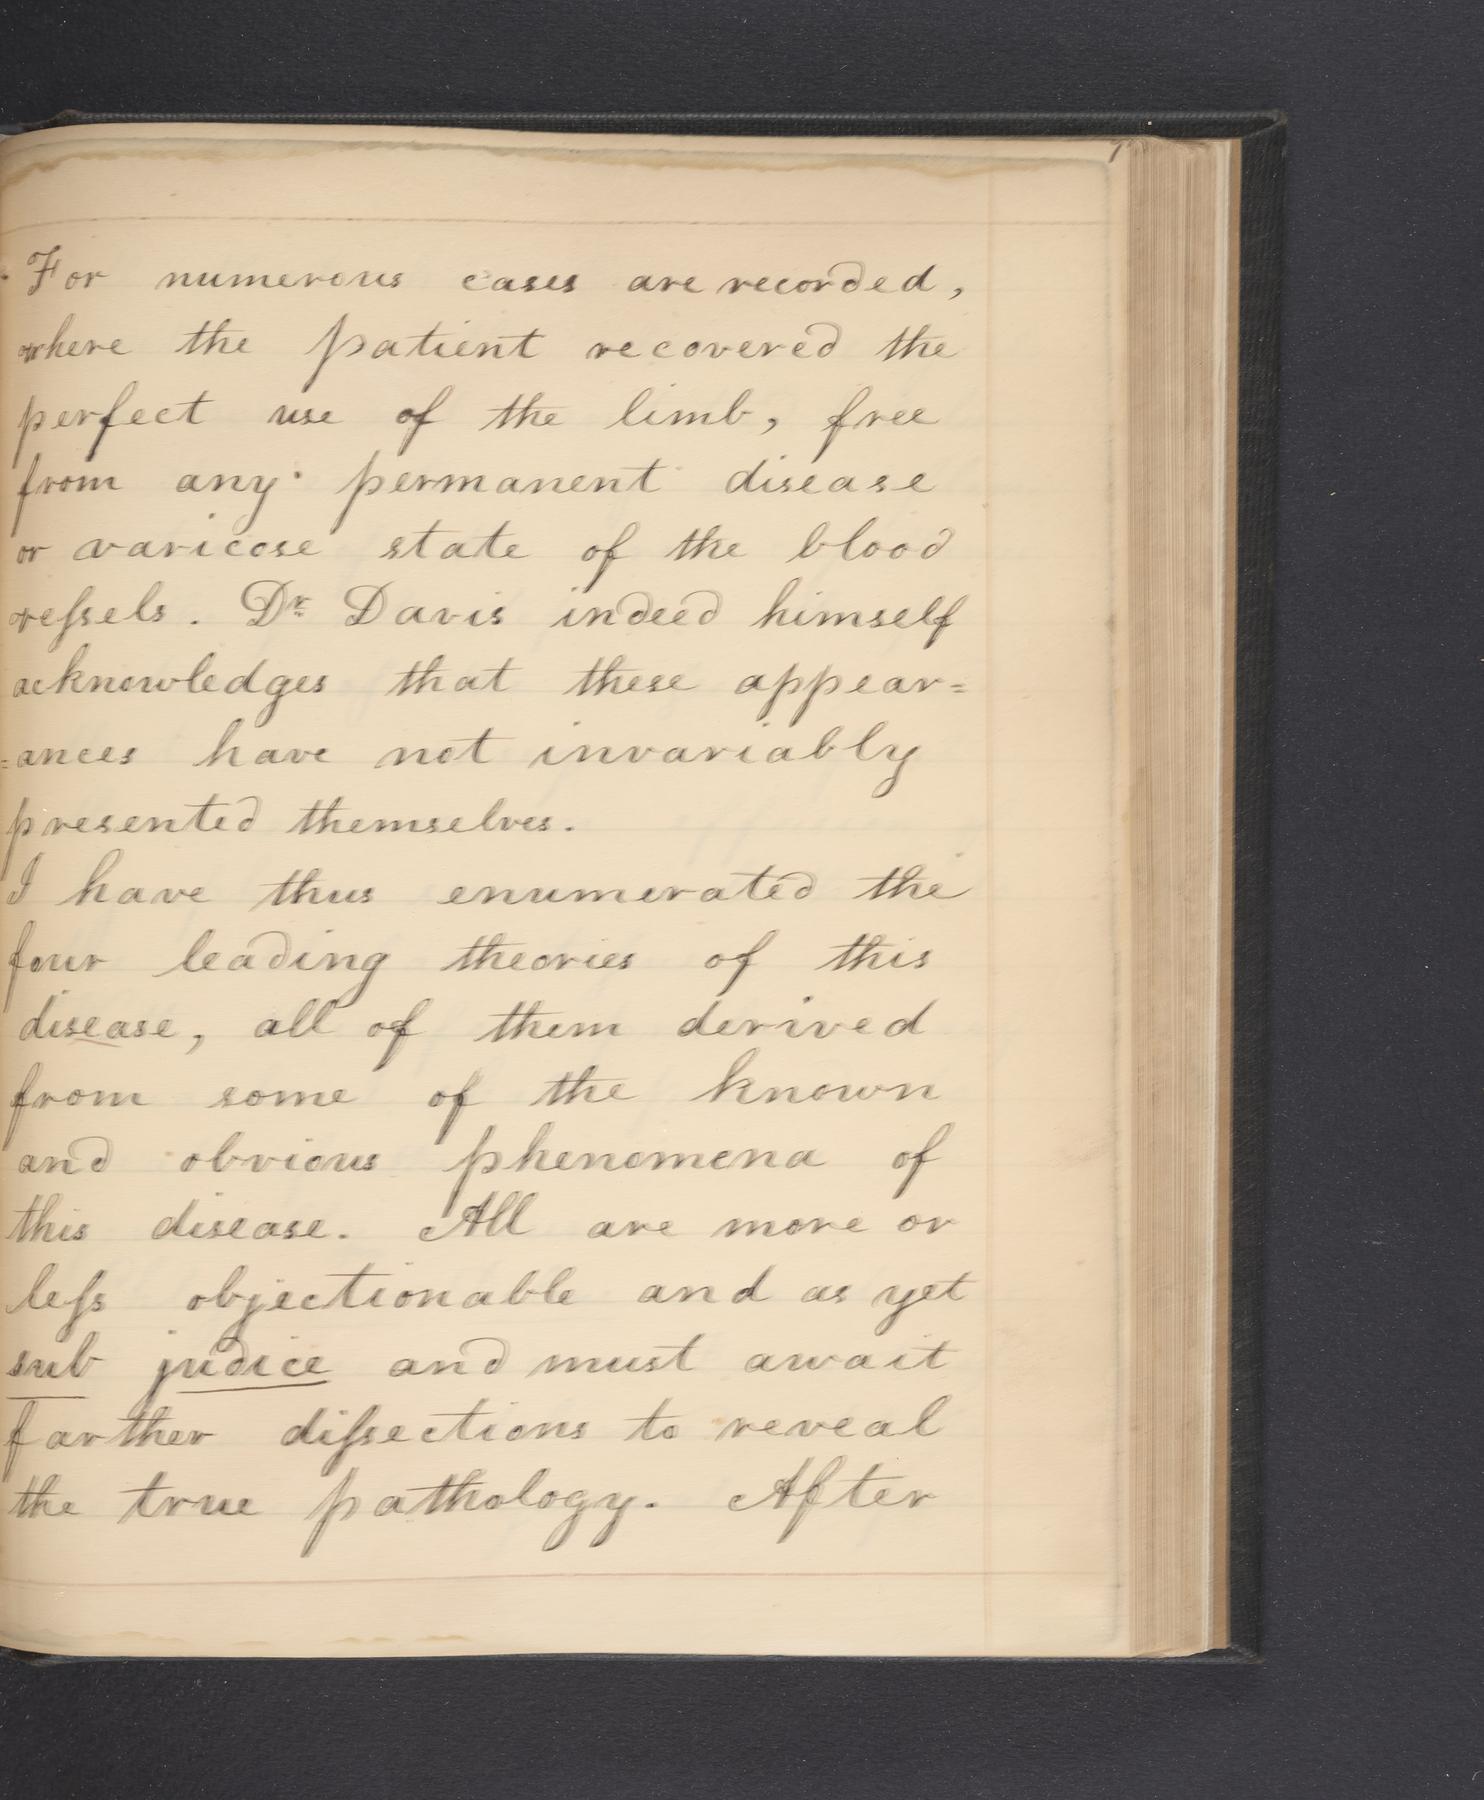 For numerous cases are recorded,
where the patient recovered the
perfect use of the limb, free
from any permanent disease
or varicose state of the blood
veſsels. Dr. Davis indeed himself
acknowledges that these appear=
=ances have not invariably
presented themselves.
I have thus enumerated the
four leading theories of this
disease, all of them derived
from some of the known
and obvious phenomena of
this disease. All are more or
leſs objectionable and as yet
sub judice and must await
farther diſsections to reveal
the true pathology. After